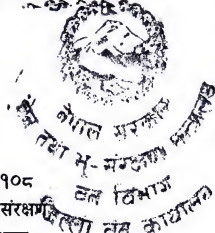 नेपाल सरकार
वन तथा भू-संरक्षण मन्त्रालय
वन विभाग
जिल्ला वन कार्यालय
१०८
संरक्षण